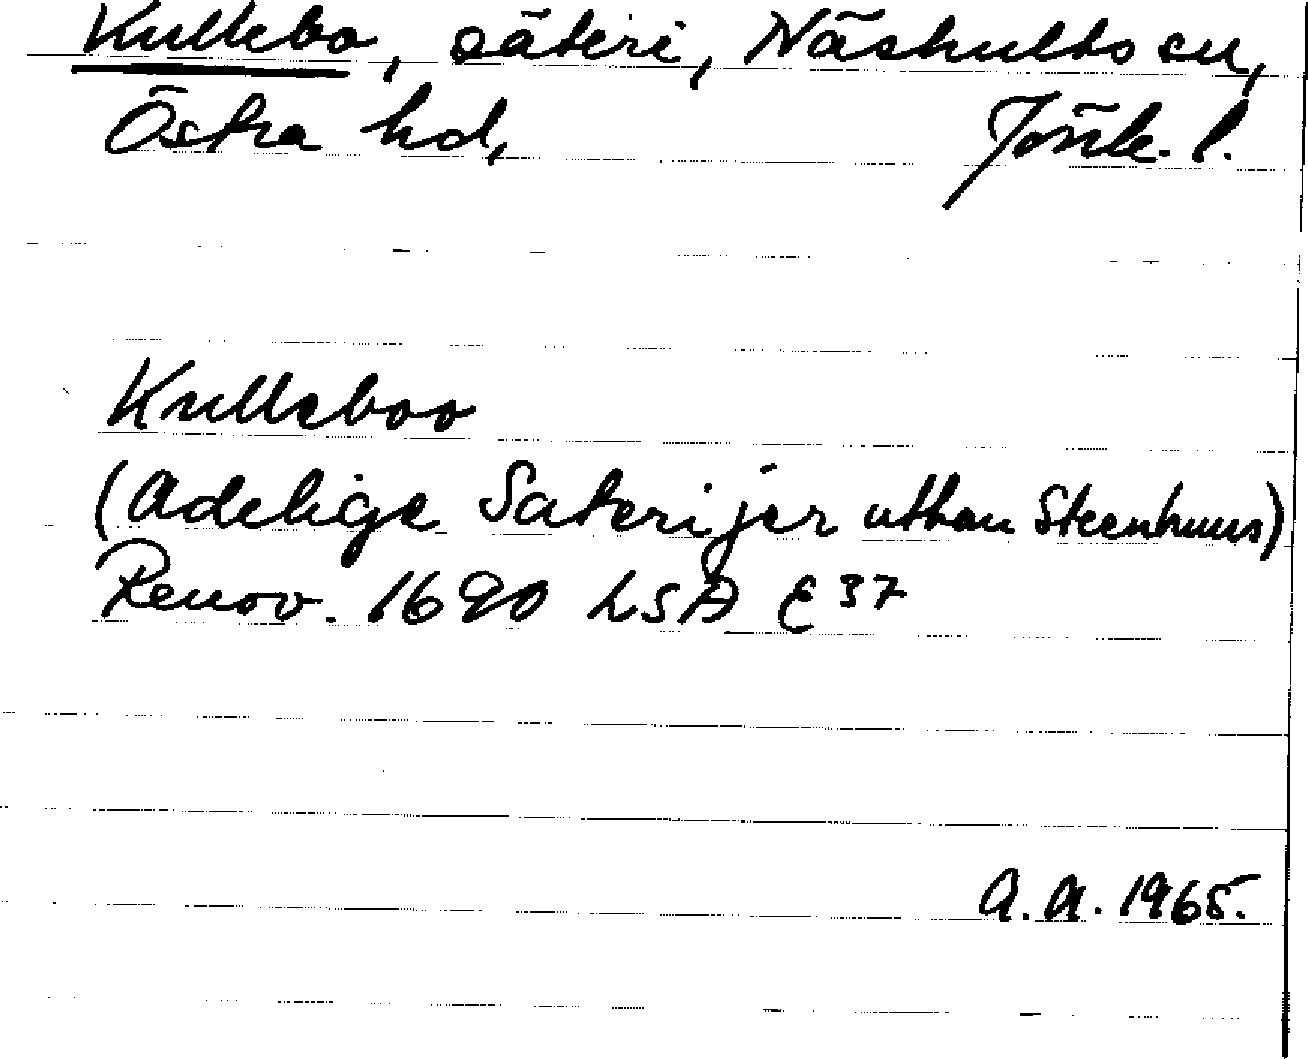 Kullebo, säteri, Näshults sn,
Östra hd, Jönk. l.
Kulleboo
(Adelige Säterijer uthan Steenhuus)
Renov. 1690 LSA E 37
A.A. 1965.